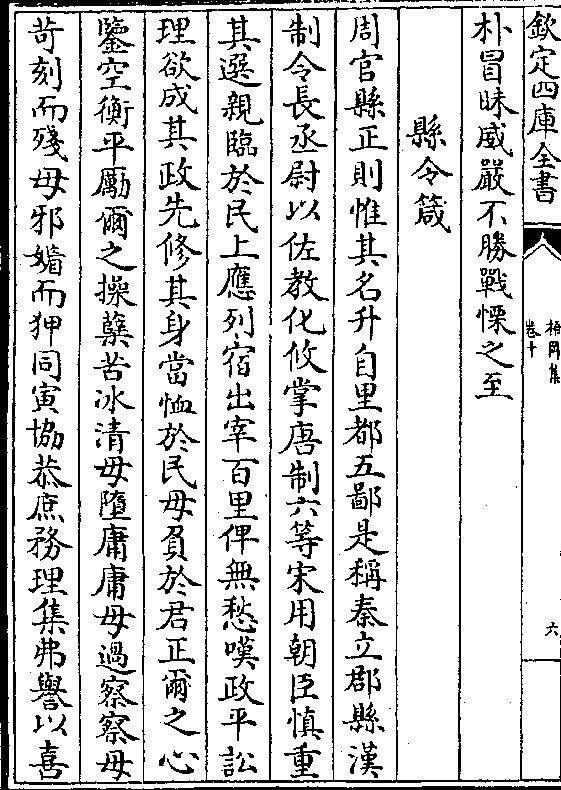 欽定四庫全書
卷十
六
朴冒昧威嚴不勝戰慄之至
縣令箴
周官縣正則惟其名升自里都五鄙是稱秦立郡縣漢
制令長丞尉以佐教化攸掌唐制六等宋用朝臣慎重
其選親臨於民上應列宿出宰百里俾無愁嘆政平訟
理欲成其政先修其身當恤於民毋負於君正爾之心
鑒空衡平勵爾之操蘖苦冰清毋墮庸庸毋過察察毋
苛刻而殘毋邪媚而狎同寅協恭庶務理集弗譽以喜